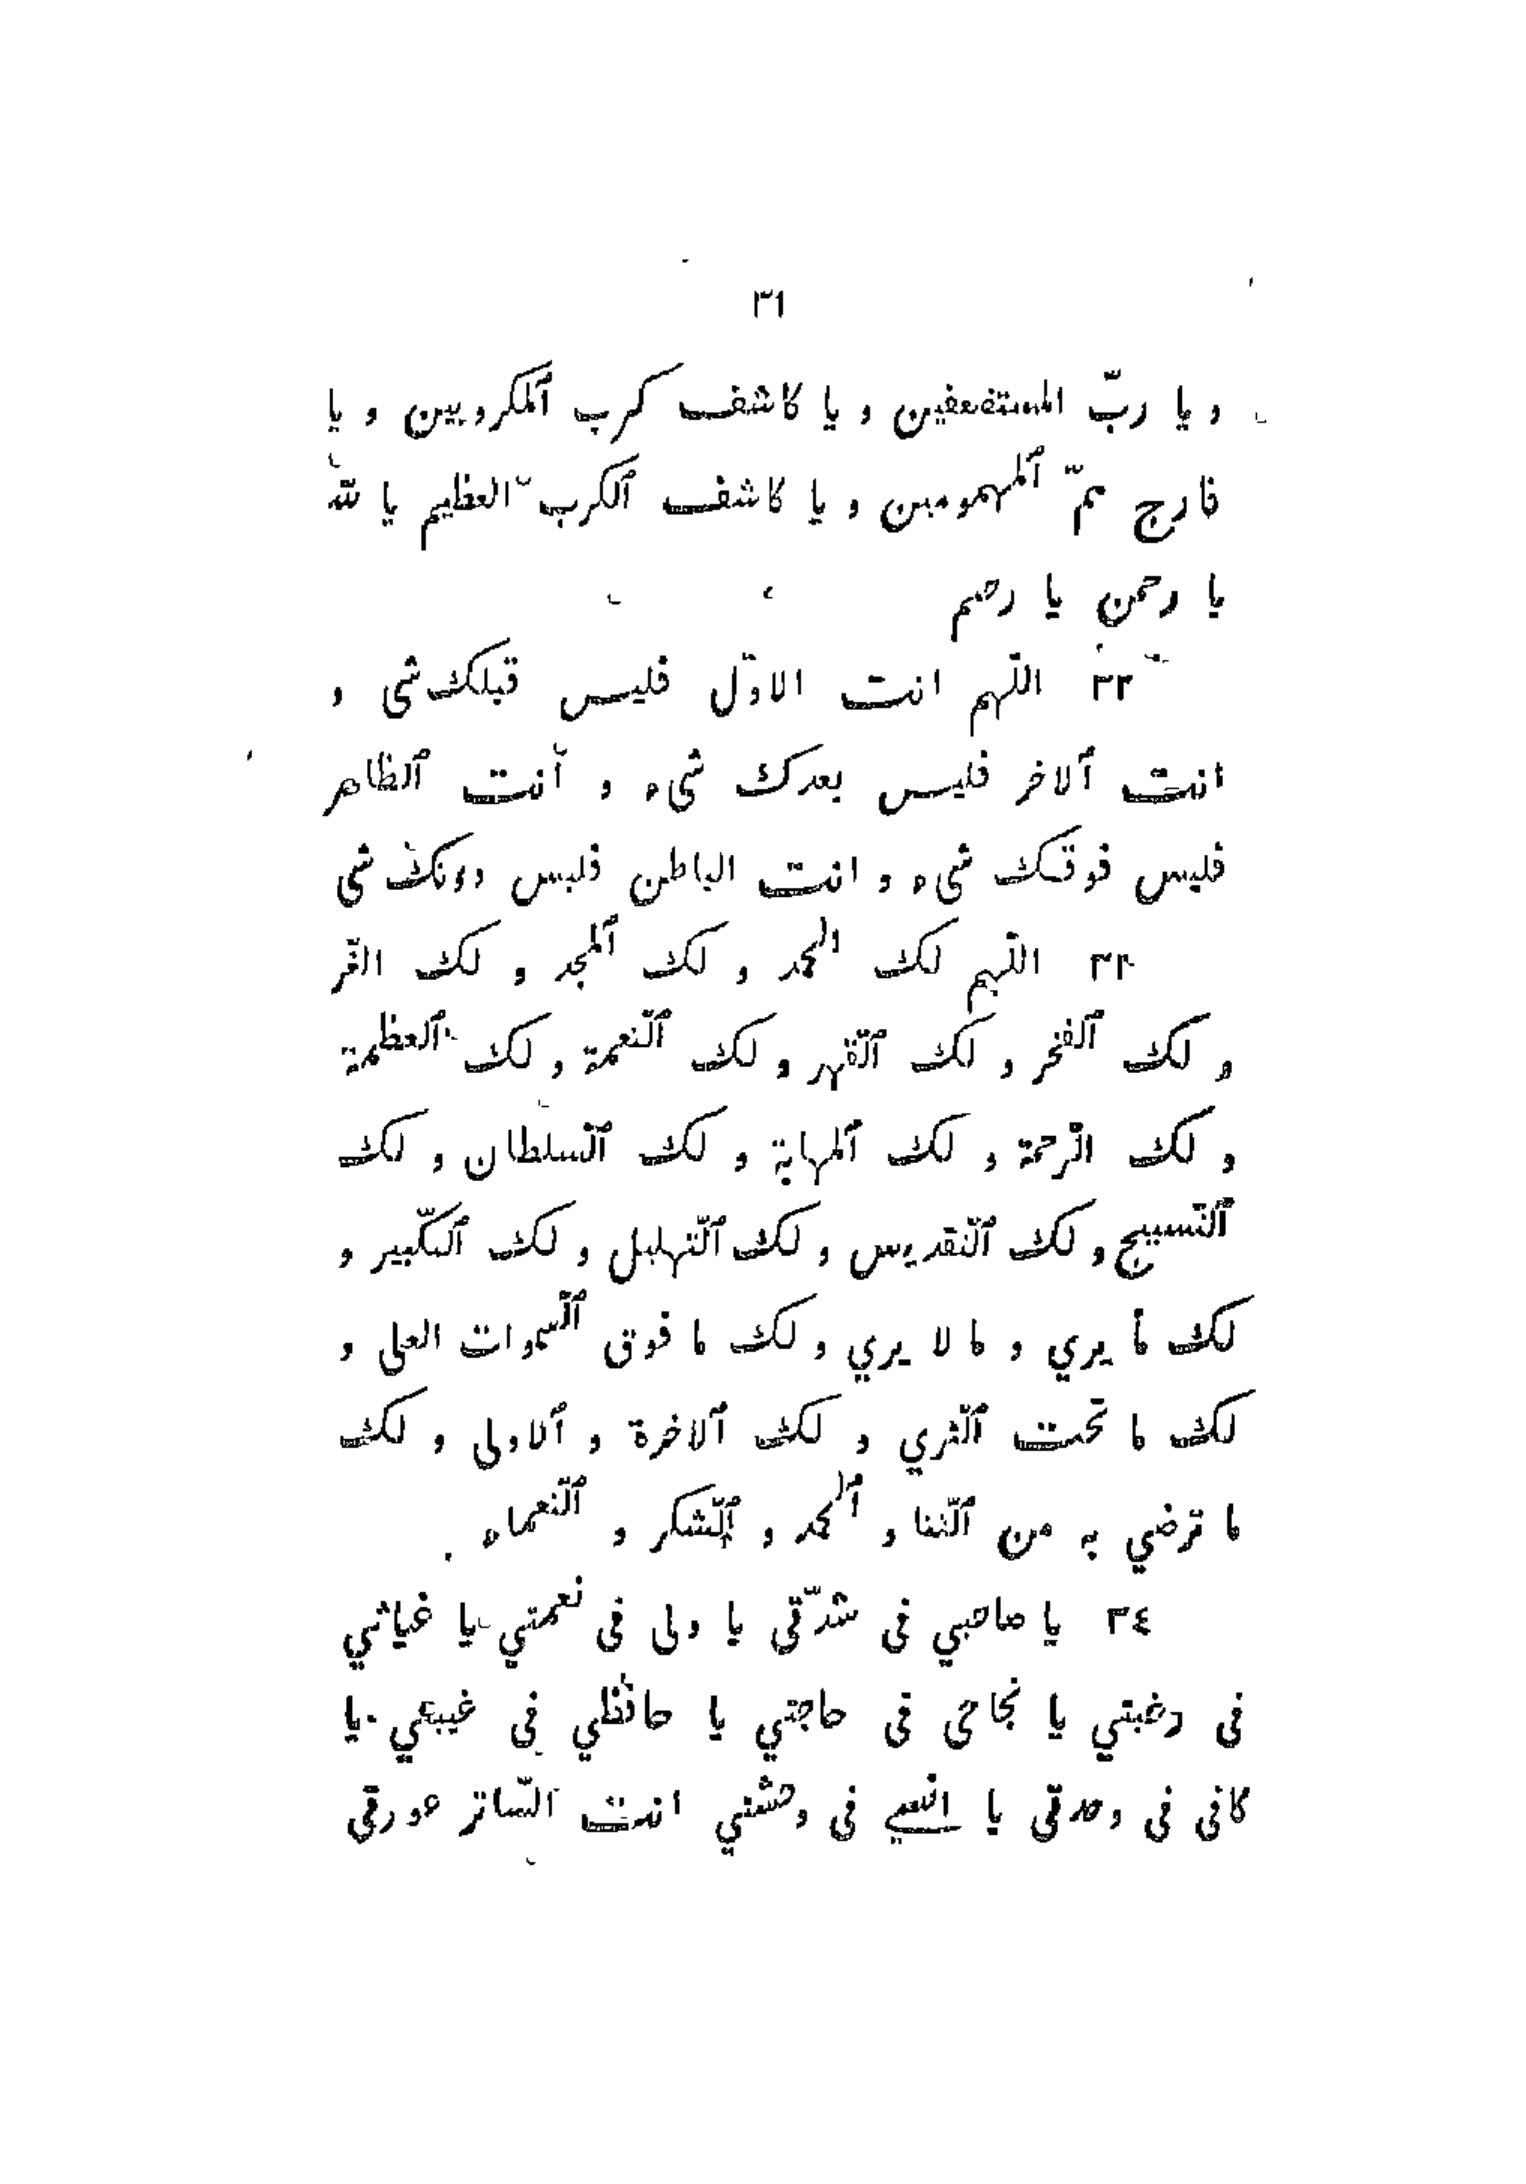 ٣١
و يا ربّ المستضعفين و يا كاشف كرب ٱلمكروبين و يا
فارج همّ ٱلمهمومين و يا كاشف ٱلكرب العظيم يا الله
يا رحمن يا رحيم
٣٢ اللّهم انت الاوّل فليس قبلك شى و
انت ٱلاخر فليس بعدك شىء و أنت ٱلظاهر
فليس فوقك شىء و انت الباطن فليس دونك شى
٣٣ اللّهم لك الحمد و لك ٱلمجد و لك العّز
و لك ٱلفخر و لك ٱلقّهر و لك ٱلنّعمة و لك ٱلعظمة
و لك الرّحمة و لك ٱلمهابة و لك ٱلسّلطان و لك
ٱلتّسبيح و لك ٱلتّقديس و لك ٱلتّهليل و لك ٱلتكّبير و
لك ما يري و ما لا يري و لك ما فوق ٱلسّموات العلى و
لك ما تحت ٱلثّري و لك ٱلاخرة و ٱلاولى و لك
ما ترضي به من ٱلثّنا و ٱلحمد و ٱلشّكر و ٱلنّعماء
٣٤ يا صاحبي فى شدّتى يا ولى فى نعمتي يا غياثي
فى رغبتي يا نجاحى فى حاجتي يا حافظي فى غيبتي يا
كافى فى وحدتى يا انسي فى وحشتي انت السّاتر عورتى